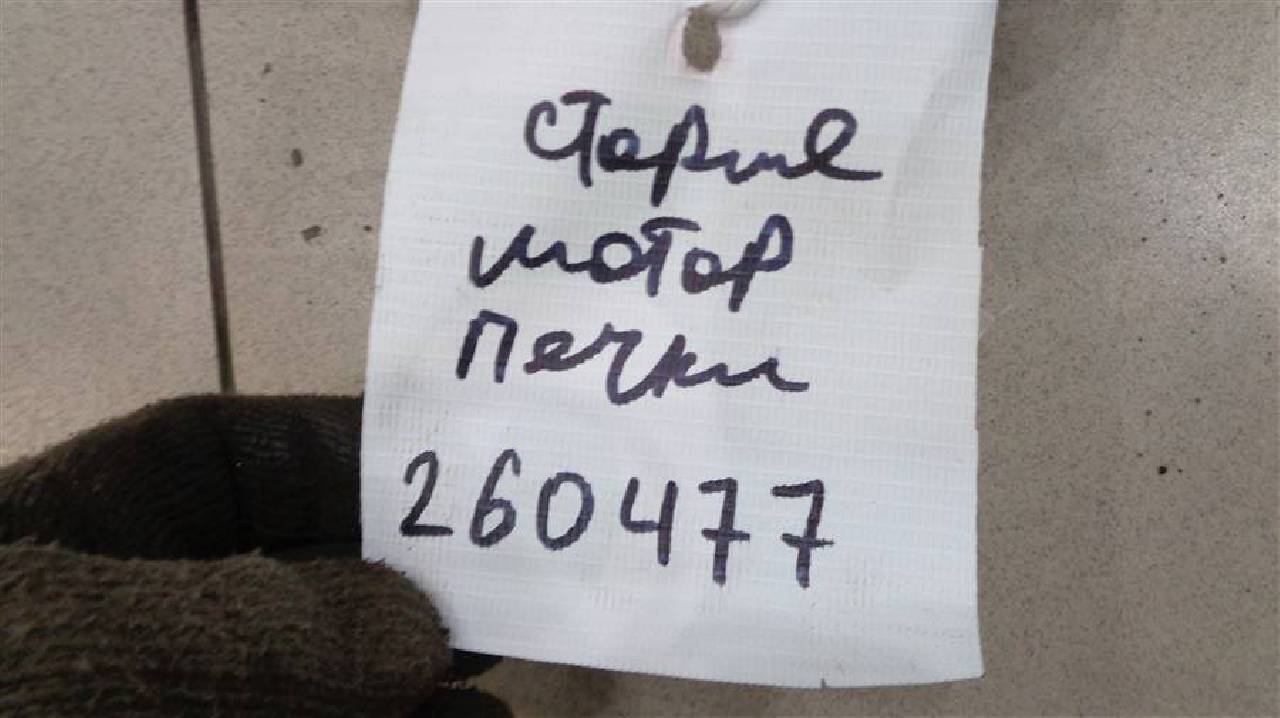 Старые
мотор
печки
260477